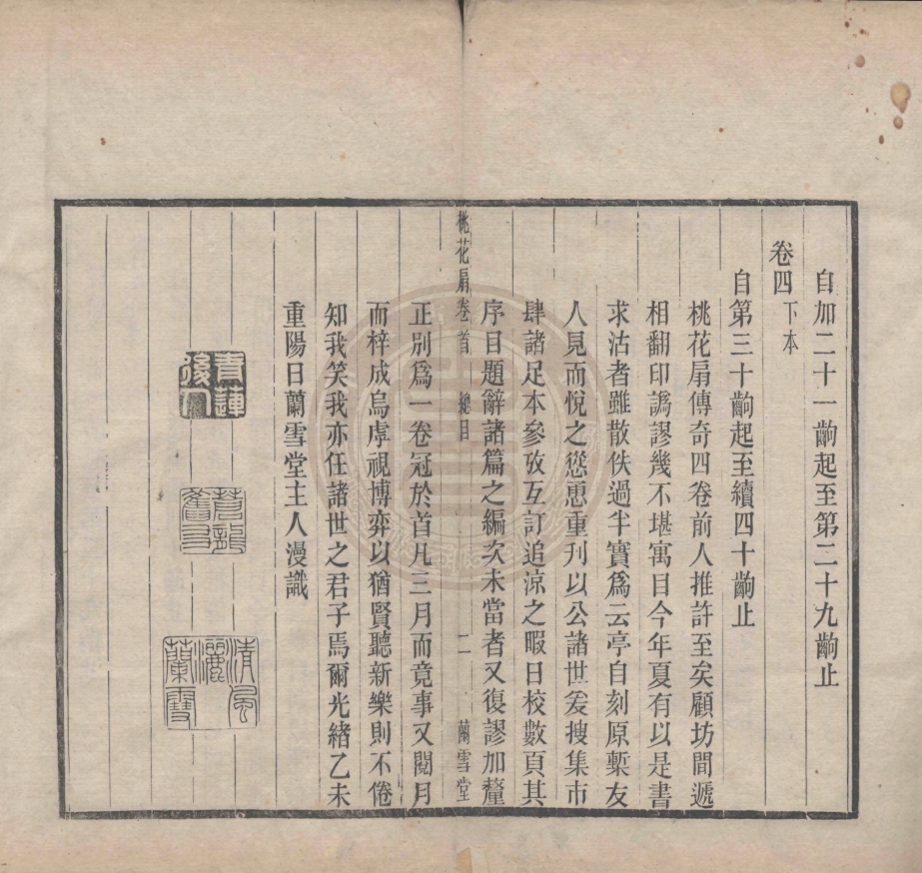 自加二十一齣起至第二十九齣止
卷四下本
自第三十齣起至續四十齣止
桃花扇傳奇四卷前人推許至矣顧坊間遞
相翻印譌謬幾不堪寓目今年夏有以是書
求沽者雖散佚過半實爲云亭自刻原槧友
人見而悅之慫恿重刊以公諸世爰搜集市
肆諸足本參攷互訂追涼之暇日校數頁其
序目題辭諸篇之編次未當者又復謬加釐
桃花扇卷首 總目 二 蘭雪堂
正別爲一卷冠於首凡三月而竟事又閱月
而梓成烏虖視博弈以猶賢聽新樂則不倦
知我笑我亦任諸世之君子焉爾光緒乙未
重陽日蘭雪堂主人漫識
青蓮後人
清風灑蘭雪